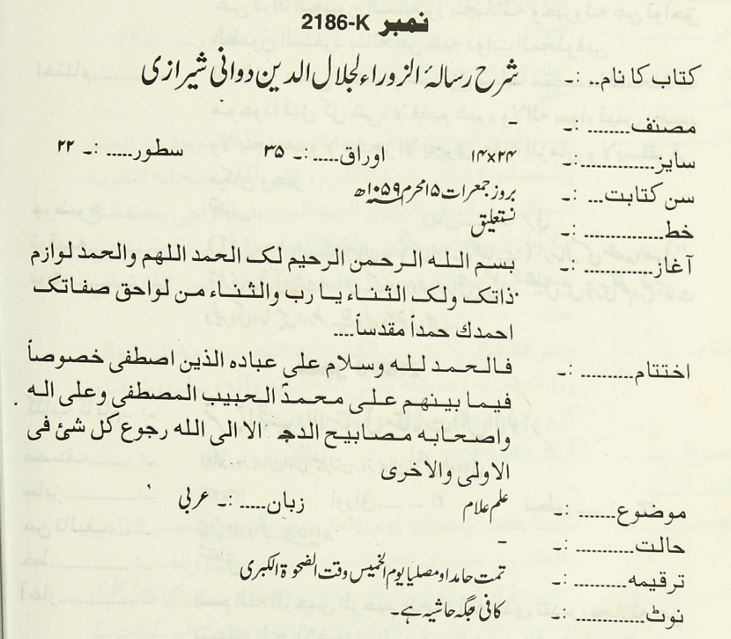 نمبر 2186-K
کتاب کا نام.. :۔ شرح رسالۂ الزوراء لجلال الدین دوانی شیرازی
مصنف......... :۔ -
سایز........... :۔ ۱۴x۲۴ اوراق..... :۔ ۳۵ سطور..... :۔ ۲۲
سن کتابت... :۔ بروز جمعرات ۱۵محرم ۱۰۵۹ھ
خط............. :۔ نستعلیق
آغاز........... :۔ بسم الله الرحمن الرحیم لک الحمد اللهم والحمد لوازم
ذاتک ولک الثناء یا رب والثناء من لواحق صفاتک
احمدك حمداً مقدساً....
اختتام......... :۔ فالحمد لله وسلام علی عباده الذین اصطفی خصوصاً
فیما بینهم علی محمدؐ الحبیب المصطفی وعلی اله
واصحابه مصابیح الدجے الا الی الله رجوع کل شئ فی
الاولی والاخری
موضوع....... :۔ علم کلام زبان..... :۔ عربی
حالت.......... :۔ -
ترقیمه......... :۔ تمت حامداومصلیا یوم الخمیس وقت الضحوۃ الکبری
نوٹ........... :۔ کافی جگہ حاشیہ ہے۔